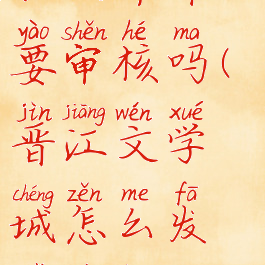 yào shěn hé ma
要审核吗(
jìn jiāng wén xué
晋江文学
chéng zěn me fā
城怎么发